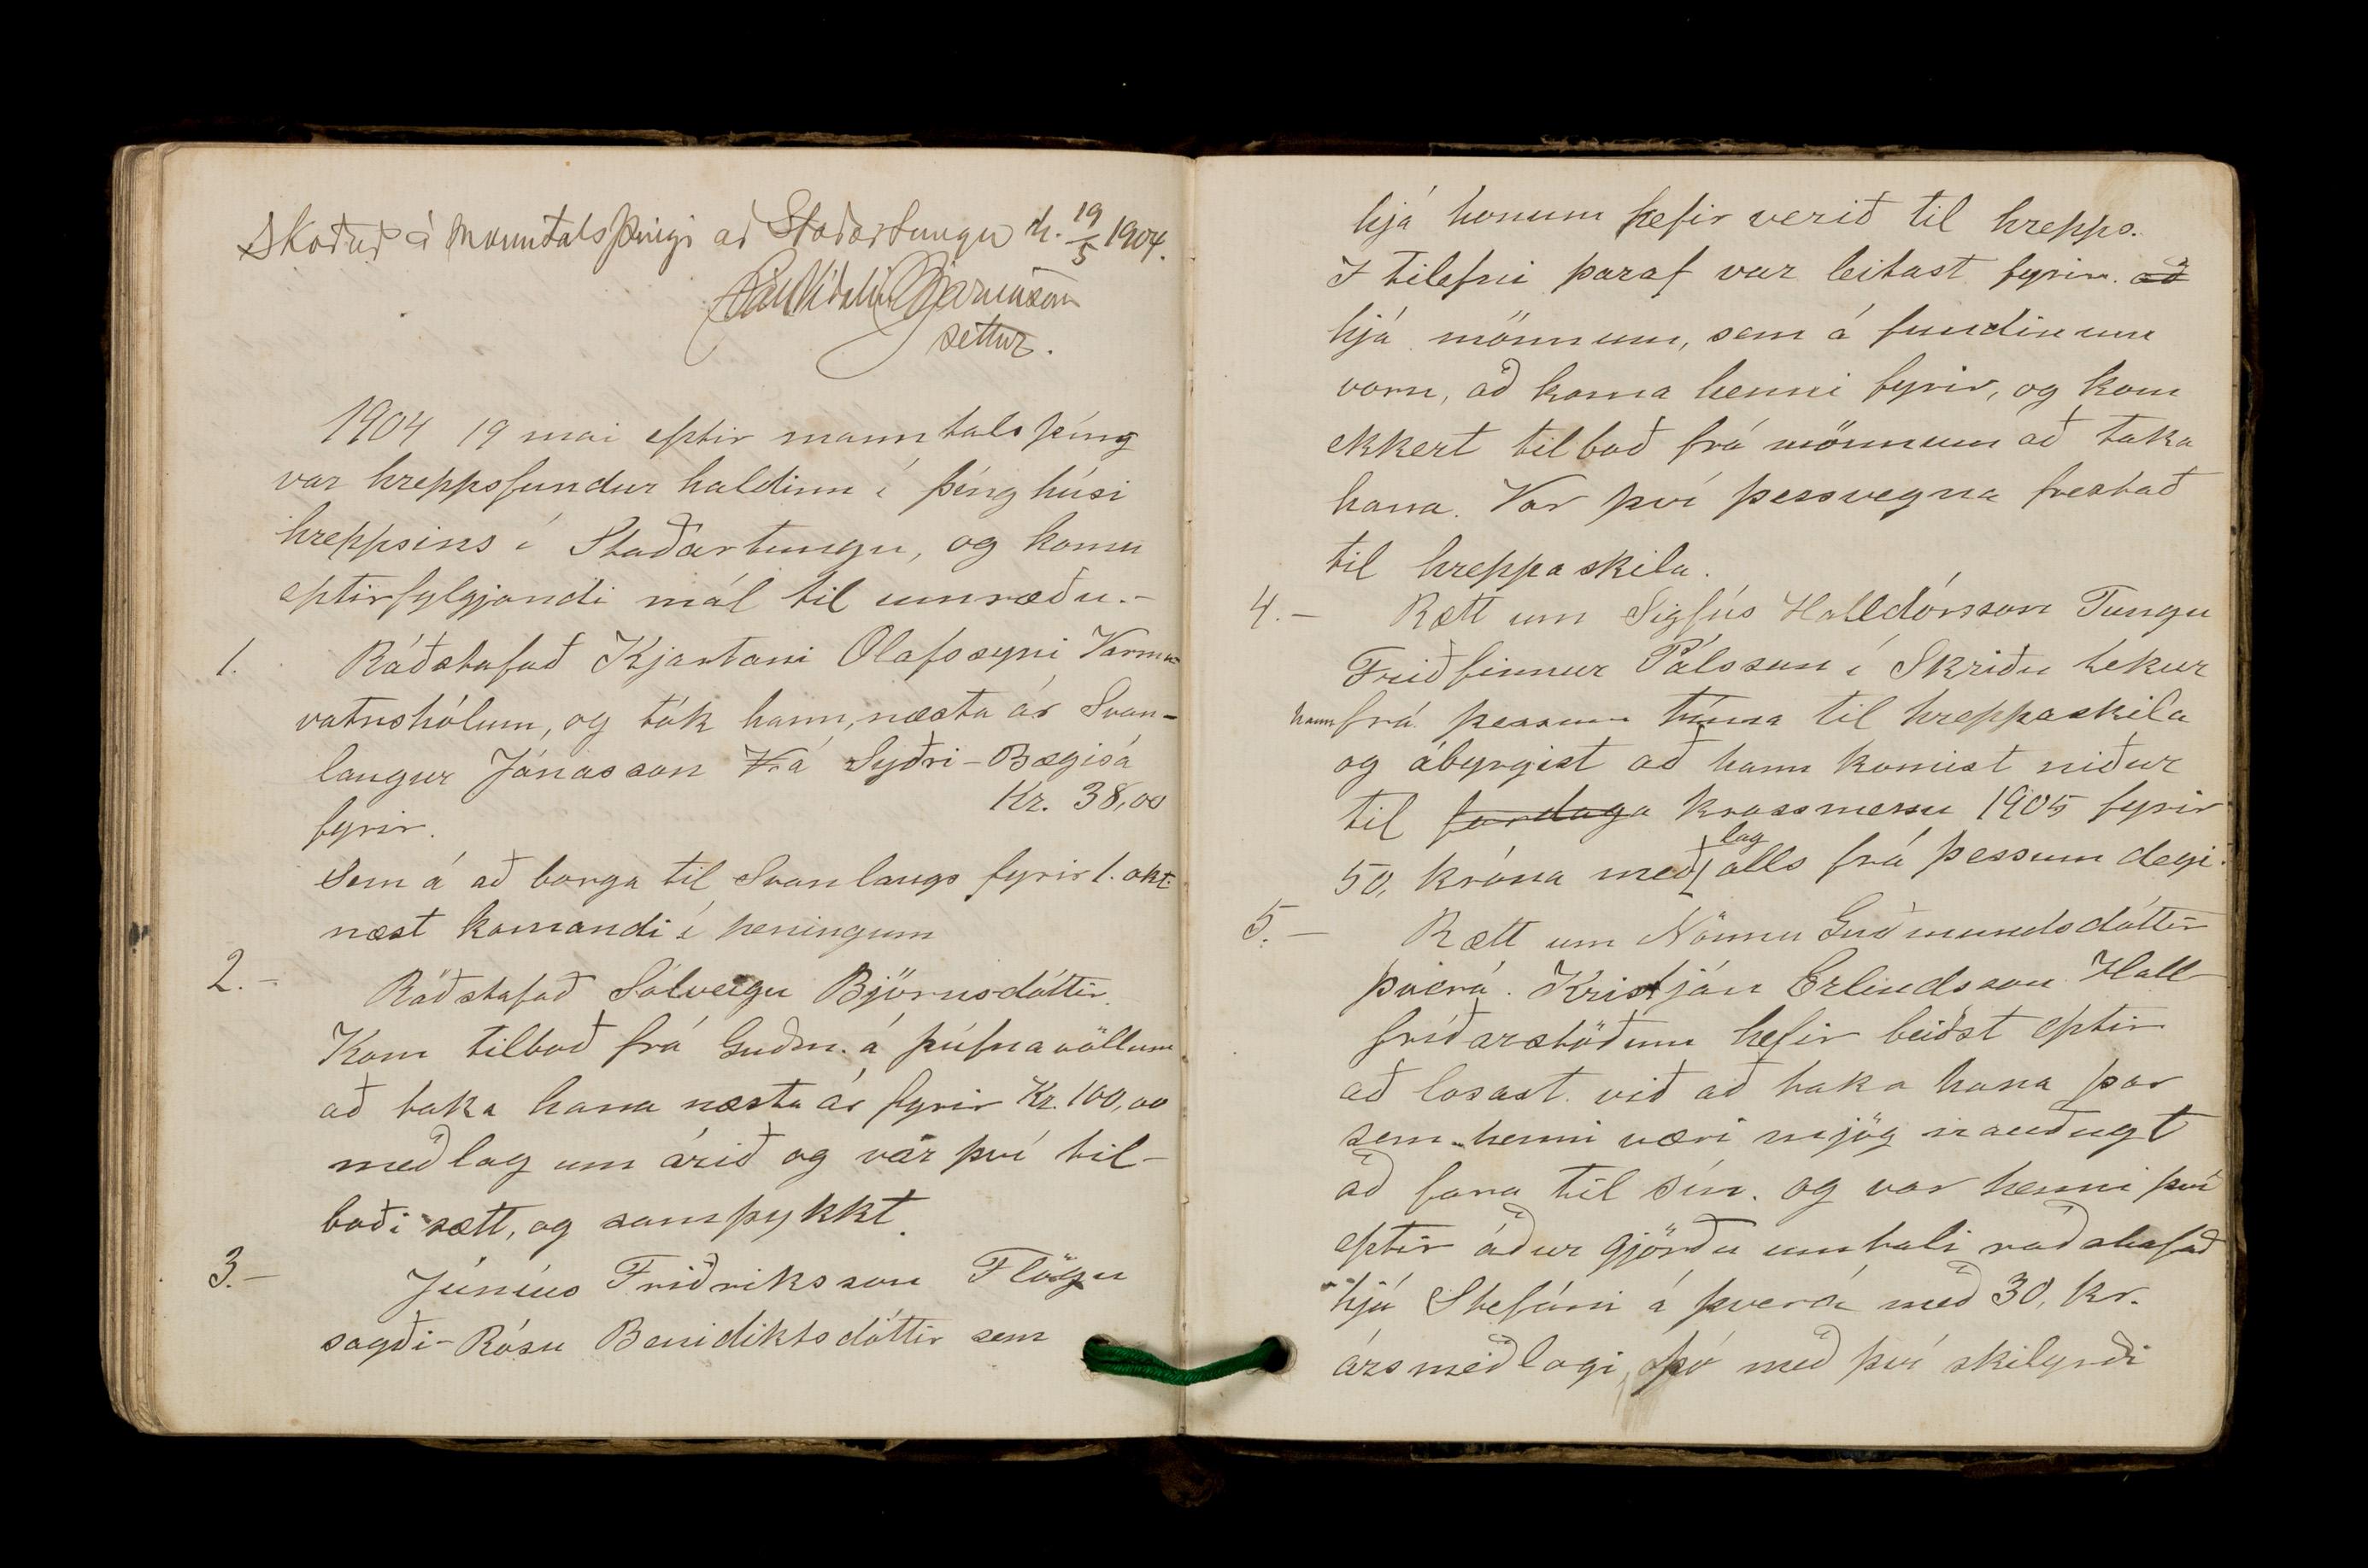 Skoðað á Manntalsþingi að Staðartungu d. 19/5 1904.
Páll Vídalín Bjarnason
settur.
1904 19 mai eptir manntalsþing
var hreppsfundur haldinn í þinghúsi
hreppsins í Staðartungu, og komu
eptirfylgjandi mál til umræðu.-
1. Ráðstafað Kjartani Olafssyni Varma-
vatnshólum, og tók hann, næsta ár Svan-
laugur Jónasson á Syðri-Bægisá
fyrir. Kr. 38,00
Sem á að borga til Svanlaugs fyrir 1. okt.
næst komandi í peningum
2.- Ráðstafað Sólveigu Björnsdóttir.
Kom tilboð frá Guðm. á þúfnavöllum
að taka hana næsta ár fyrir Kr. 100,00
meðlag um árið og var því til-
boði sætt, og samþykkt.
3.- Júníus Friðriksson Flögu
sagði-Rósu Benidiktsdóttir sem
hjá honum hefir verið til hrepps.
I tilefni þaraf var leitast fyrir. að
hjá mönnum, sem á fundinum
voru, að koma henni fyrir, og kom
ekkert tilboð frá mönnum að taka
hana. Var því þessvegna frestað
til hreppaskila.
4.- Rætt um Sigfús Halldórsson Tungu
Friðfinnur Pálsson í Skriðu tekur
hann frá þessum tíma til hreppaskila
og ábyrgist að hann komist niður
til fardaga krossmessu 1905 fyrir
50, króna meðlag alls frá þessum degi.
5.- Rætt um Nönnu Guðmundsdóttir
þverá. Kristján Erlindsson Hall-
fríðarstöðum hefir beiðst eptir
að losast við að taka hana þar
sem henni væri mjög nauðugt
að fara til sín. og var henni því
eptir áður gjörðu umtali ráðstafað
hjá Stefáni á þverá með 30, kr.
ársmeðlagi, þó með því skilyrði